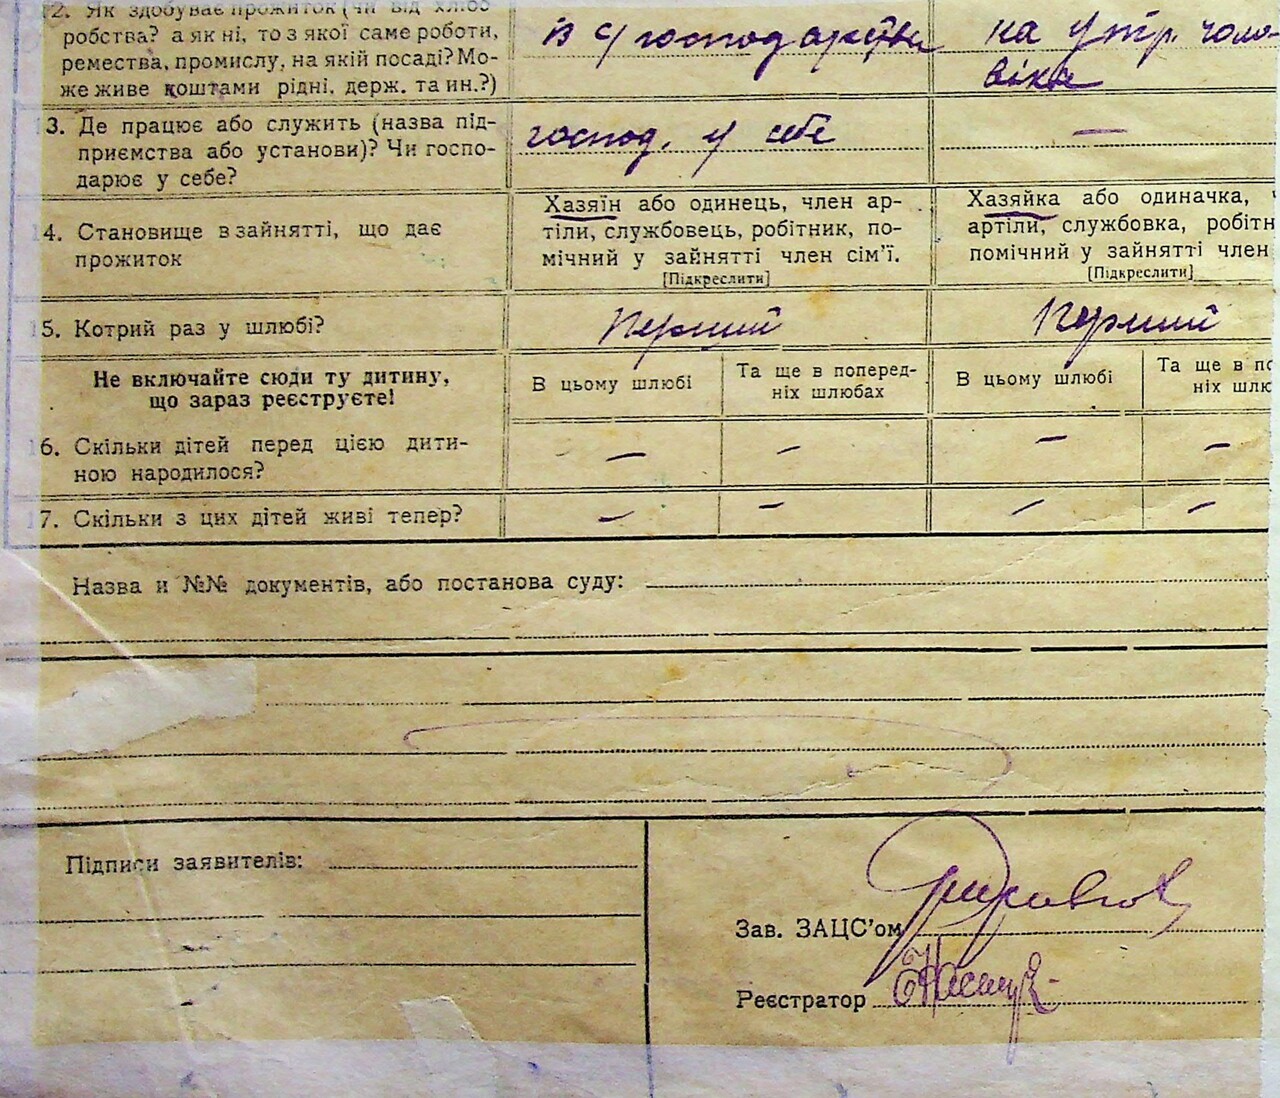 12. Як здобуває прожиток (чи від хлібо
робства? а як ні, то з якої саме роботи,
ремества, промислу, на якій посаді? Мо-
же живе коштами рідні, держ. та ин.?)
із с/господарства
на утр. чоло-
віка
13. Де працює або служить (назва під-
приємства або установи)? Чи госпо-
дарює у себе?
господ. у себе
—
14. Становище в зайнятті, що дає
прожиток
Хазяїн або одинець, член ар-
тіли, службовець, робітник, по-
мічний у зайнятті член сім'ї.
[Підкреслити]
Хазяйка або одиначка, ч
артіли, службовка, робітн
помічний у зайнятті член
[Підкреслити]
15. Котрий раз у шлюбі?
Перший
Перший
Не включайте сюди ту дитину,
що зараз реєструєте!
В цьому шлюбі
Та ще в поперед-
ніх шлюбах
В цьому шлюбі
Та ще в по
ніх шлю
16. Скільки дітей перед цією дити-
ною народилося?
— — — —
17. Скільки з цих дітей живі тепер?
— — — —
Назва и №№ документів, або постанова суду:
Підписи заявителів:
Зав. ЗАЦС'ом
Реєстратор